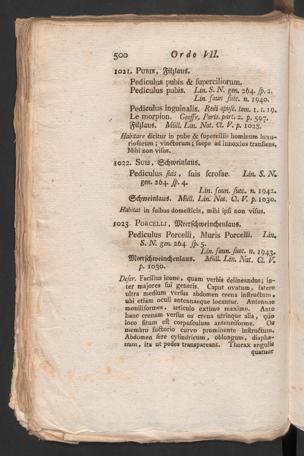 500 Ordo VII.
1021. PUBIS, Filzlaus.
Pediculus pubis & superciliorum.
Pediculus pubis. Lin. S. N. gen. 264. sp. 2.
Lin. faun. suec. n. 1940.
Pediculus inguinalis. Redi opusc. tom. 1. t. 19.
Le morpion. Geoffr. Paris. part. 2. p. 597.
Filzlaus. Müll. Lin. Nat. G. V. p. 1028.
Habitare dicitur in pube & superciliis hominum luxu-
riosorum; vinctorum; saepe ad innoxios transiens.
Mihi non visus.
1022. SUIS, Schweinlaus.
Pediculus suis, suis scrofae. Lin. S. N.
gen. 264. sp. 4.
Lin. faun. suec. n. 1942.
Schweinlaus. Müll. Lin. Nat. G. V. p. 1030.
Habitat in suibus domesticis, mihi ipsi non visus.
1023. PORCELLI, Meerschweinchenlaus.
Pediculus Porcelli, Muris Porcelli. Lin.
S. N. gen. 264 sp. 5.
Lin. faun. suec. n. 1943.
Meerschweinchenlaus. Müll. Lin. Nat. G. V.
p. 1030.
Descr. Facilius icone, quam verbis delineandus; in-
ter majores sui generis. Caput ovatum, latere
ultra medium versus abdomen crena instructum,
ubi etiam oculi antennaeque locantur. Antennae
moniliformes, articulo extimo maximo. Ante
hanc crenam versus os crena utrinque alia, quo
loco situm est corpusculum antenniforme. Os
membro suctorio curvo prominente instructum.
Abdomen fere cylindricum, oblongum, diapha-
num, ita ut posses transpareant. Thorax angulis
quatuor